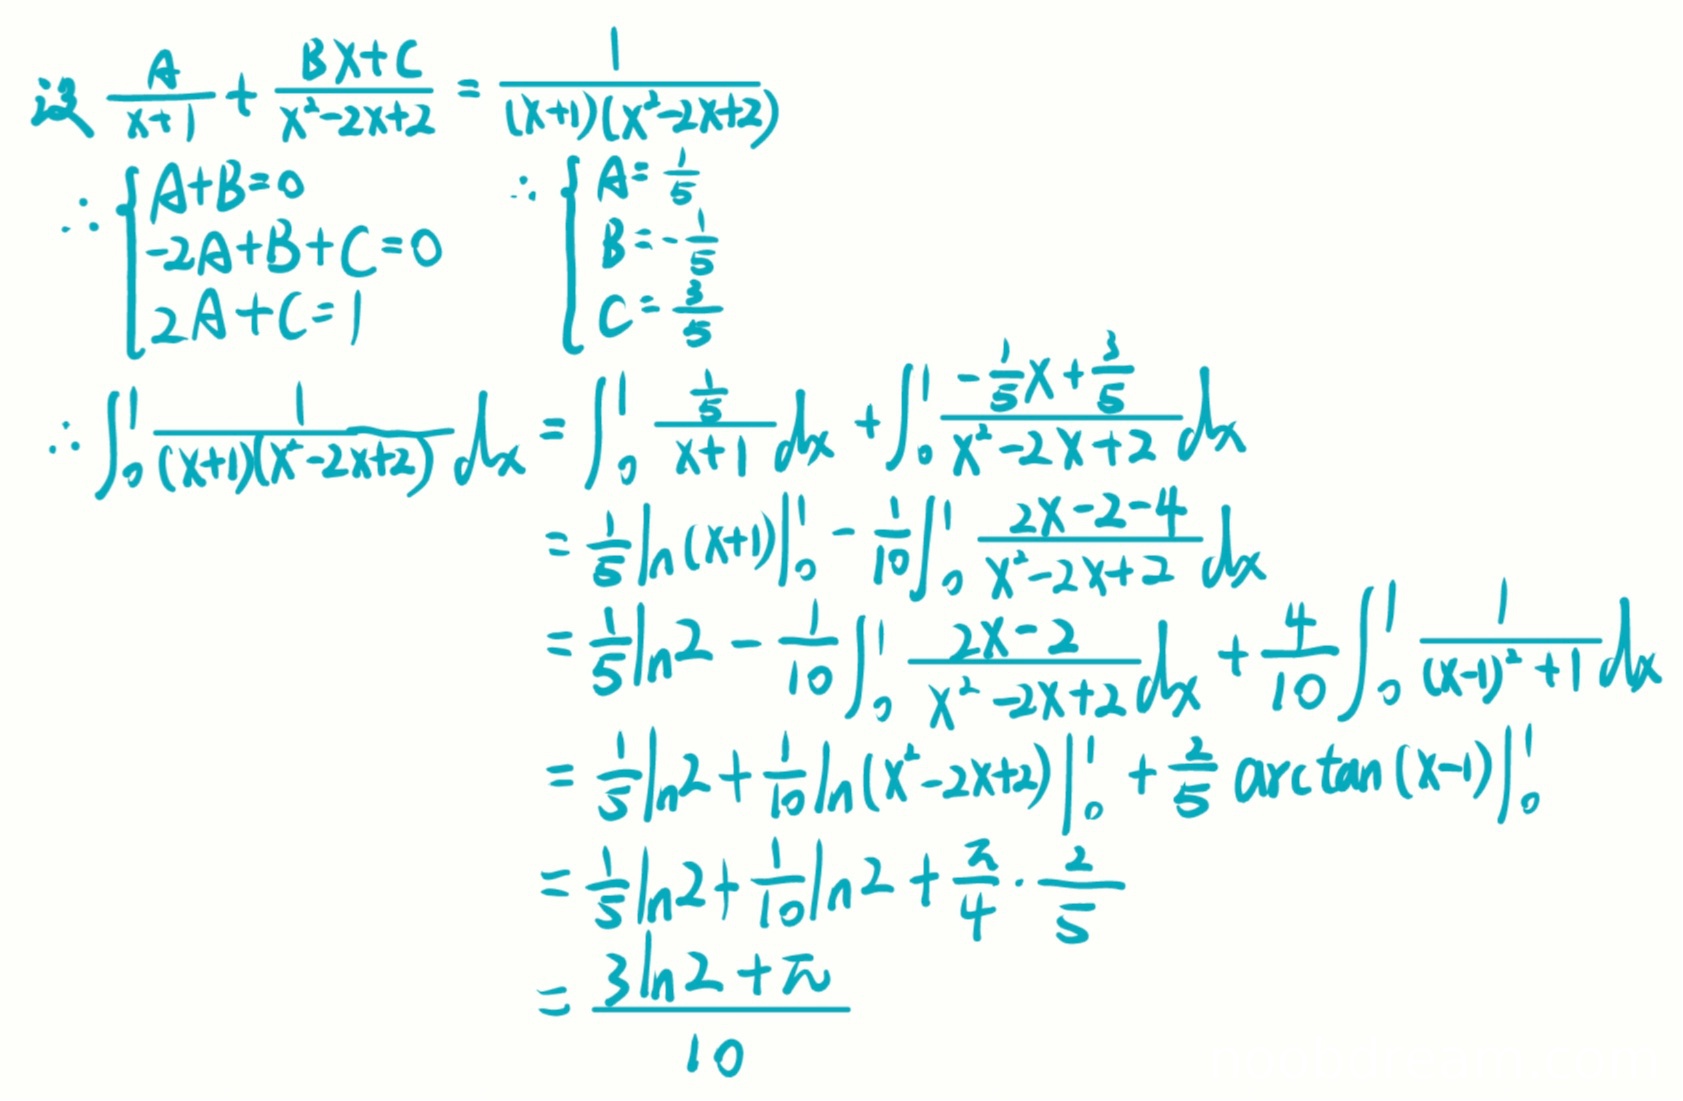 设 \frac{A}{x+1} + \frac{Bx+C}{x^2-2x+2} = \frac{1}{(x+1)(x^2-2x+2)}
∴ \begin{cases} A+B=0 \\ -2A+B+C=0 \\ 2A+C=1 \end{cases} ∴ \begin{cases} A=\frac{1}{5} \\ B=-\frac{1}{5} \\ C=\frac{3}{5} \end{cases}
∴ \int_0^1 \frac{1}{(x+1)(x^2-2x+2)} dx = \int_0^1 \frac{\frac{1}{5}}{x+1} dx + \int_0^1 \frac{-\frac{1}{5}x+\frac{3}{5}}{x^2-2x+2} dx
= \frac{1}{5} ln(x+1) |_0^1 - \frac{1}{10} \int_0^1 \frac{2x-2-4}{x^2-2x+2} dx
= \frac{1}{5} ln2 - \frac{1}{10} \int_0^1 \frac{2x-2}{x^2-2x+2} dx + \frac{4}{10} \int_0^1 \frac{1}{(x-1)^2+1} dx
= \frac{1}{5} ln2 + \frac{1}{10} ln(x^2-2x+2) |_0^1 + \frac{2}{5} arctan(x-1) |_0^1
= \frac{1}{5} ln2 + \frac{1}{10} ln2 + \frac{π}{4} · \frac{2}{5}
= \frac{3ln2+π}{10}